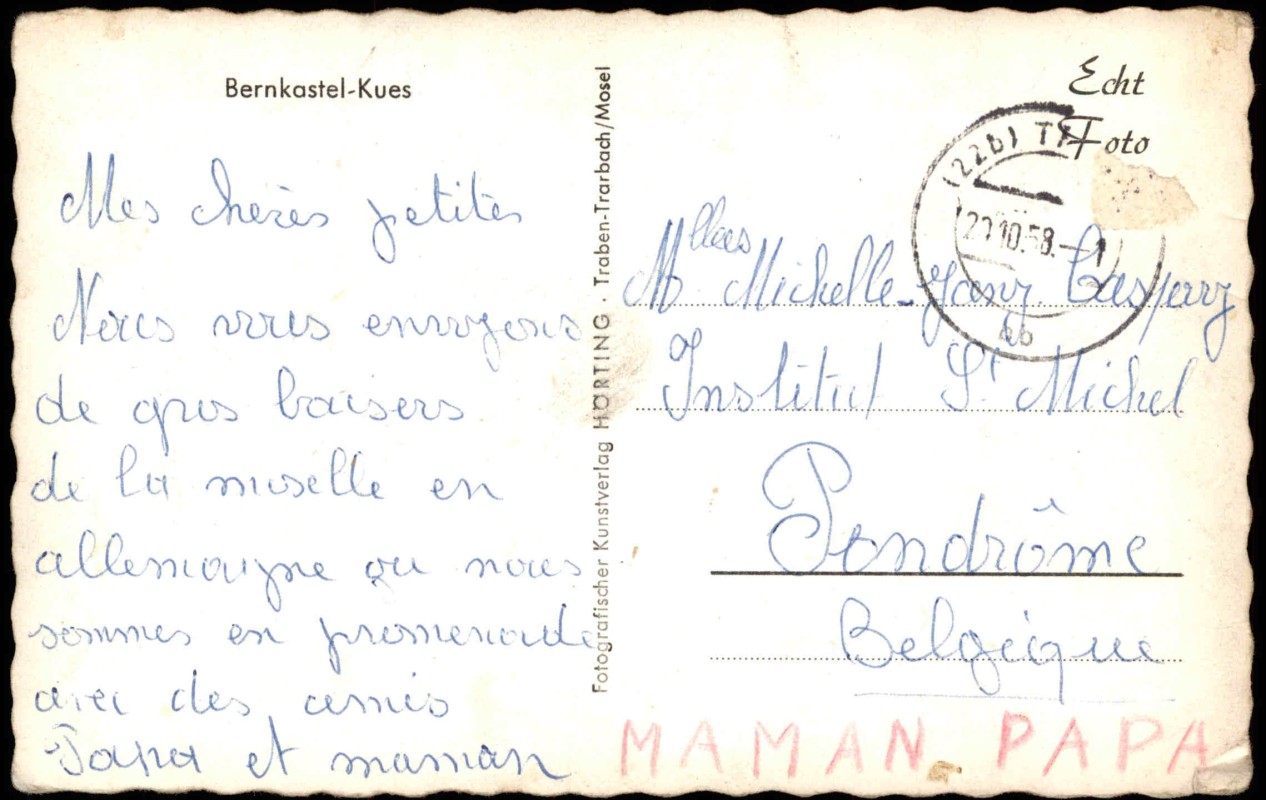 Bernkastel-Kues
Mes chères petites
Nous vous envoyons
de gros baisers
de la moselle en
allemaigne ou nous
sommes en promenade
avec des amis
Papa et maman
Fotografischer Kunstverlag HORTING · Traben-Trarbach/Mosel
Echt
Foto
(22b) T
20.10.58.-1
bb
Mlles Michelle-Jany Caspary
Institut St Michel
Pondrôme
Belgique
MAMAN PAPA